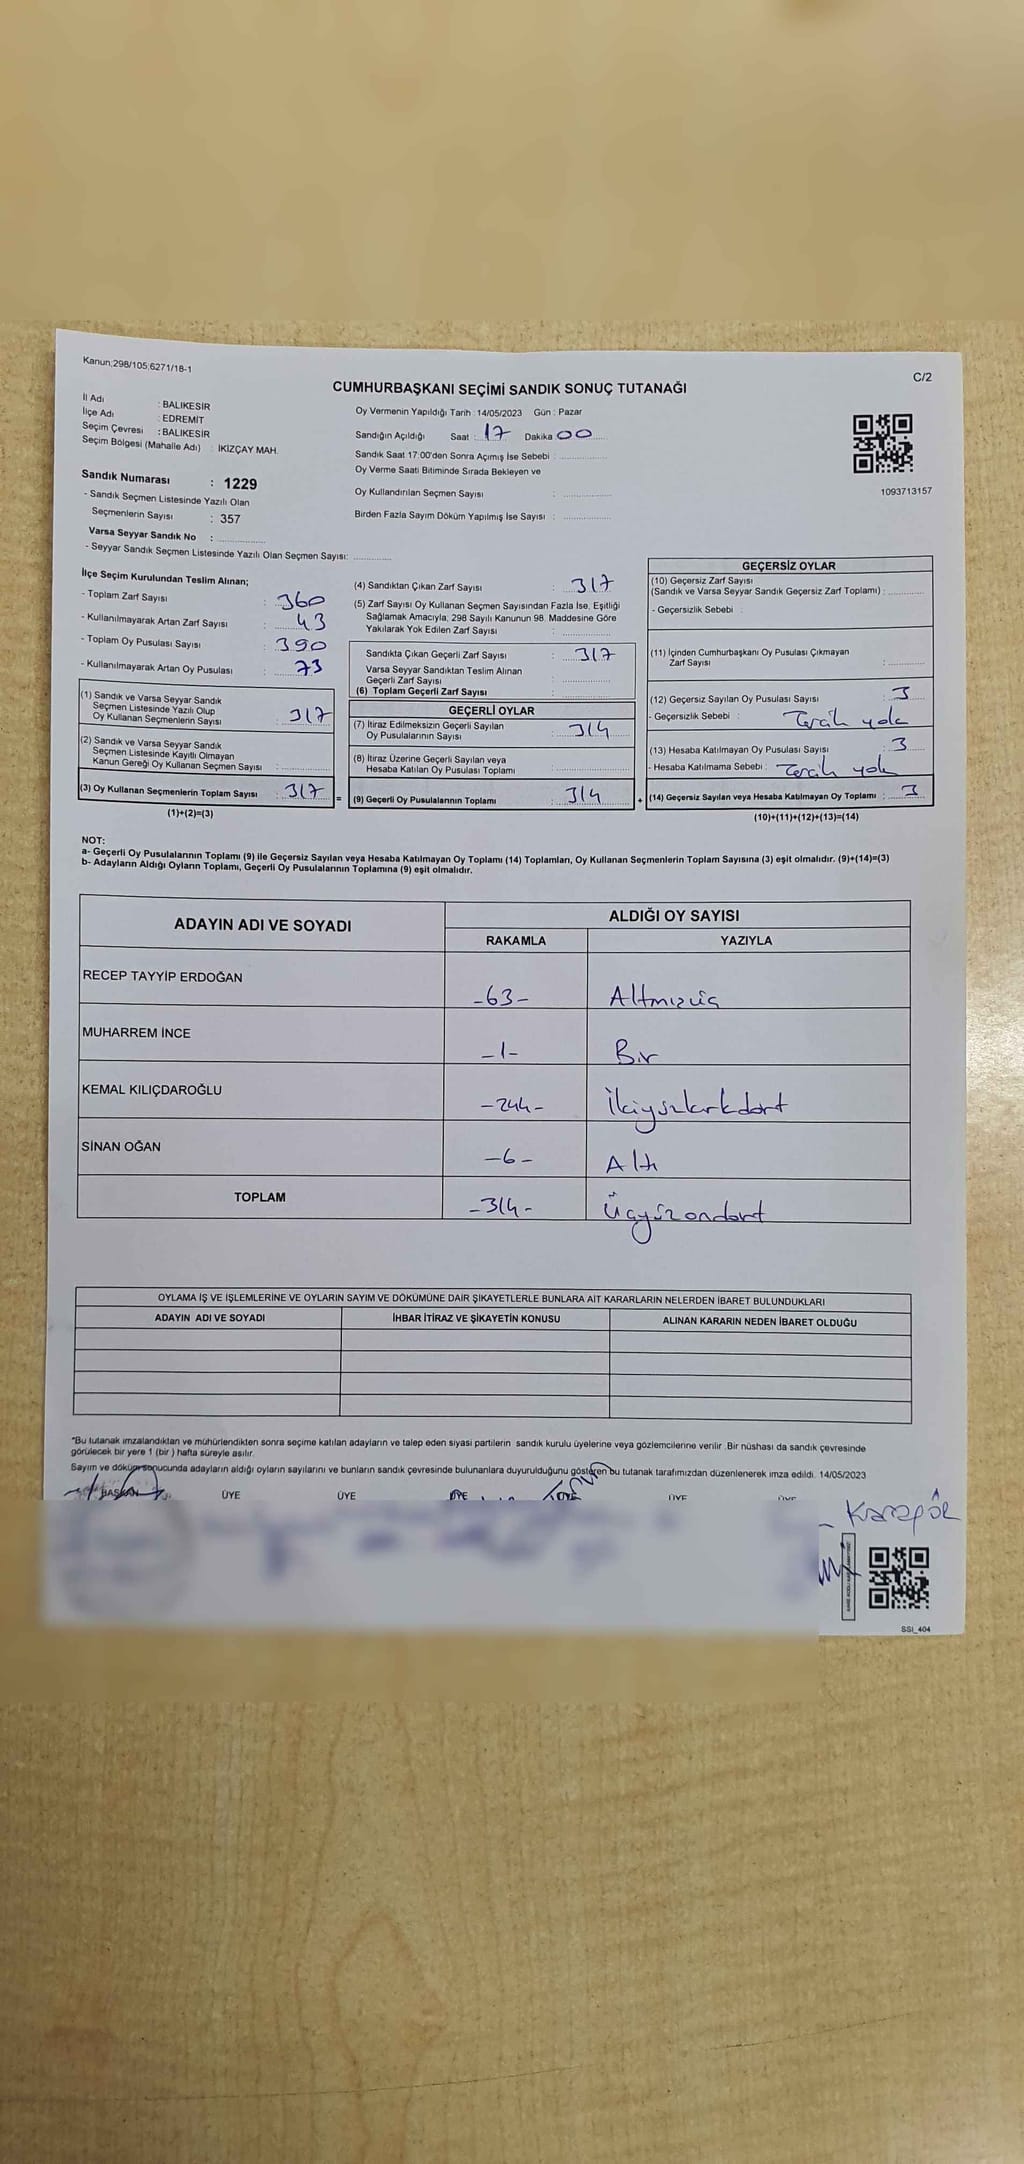 Kanun;298/105;6271/18-1
C/2
CUMHURBAŞKANI SEÇİMİ SANDIK SONUÇ TUTANAĞI
İl Adı : BALIKESİR
İlçe Adı : EDREMİT
Seçim Çevresi : BALIKESİR
Seçim Bölgesi (Mahalle Adı) : İKİZÇAY MAH.
Oy Vermenin Yapıldığı Tarih : 14/05/2023 Gün : Pazar
Sandığın Açıldığı Saat : 17 Dakika 00
Sandık Saat 17:00'den Sonra Açımış İse Sebebi :
Oy Verme Saati Bitiminde Sırada Bekleyen ve
Oy Kullandırılan Seçmen Sayısı :
Birden Fazla Sayım Döküm Yapılmış İse Sayısı :
1093713157
Sandık Numarası : 1229
- Sandık Seçmen Listesinde Yazılı Olan
Seçmenlerin Sayısı : 357
Varsa Seyyar Sandık No :
- Seyyar Sandık Seçmen Listesinde Yazılı Olan Seçmen Sayısı:
İlçe Seçim Kurulundan Teslim Alınan;
- Toplam Zarf Sayısı : 360
- Kullanılmayarak Artan Zarf Sayısı : 43
- Toplam Oy Pusulası Sayısı : 390
- Kullanılmayarak Artan Oy Pusulası : 73
(1) Sandık ve Varsa Seyyar Sandık
Seçmen Listesinde Yazılı Olup
Oy Kullanan Seçmenlerin Sayısı : 317
(2) Sandık ve Varsa Seyyar Sandık
Seçmen Listesinde Kayıtlı Olmayan
Kanun Gereği Oy Kullanan Seçmen Sayısı :
(3) Oy Kullanan Seçmenlerin Toplam Sayısı : 317 =
(1)+(2)=(3)
(4) Sandıktan Çıkan Zarf Sayısı : 317
(5) Zarf Sayısı Oy Kullanan Seçmen Sayısından Fazla İse, Eşitliği
Sağlamak Amacıyla, 298 Sayılı Kanunun 98. Maddesine Göre
Yakılarak Yok Edilen Zarf Sayısı :
Sandıkta Çıkan Geçerli Zarf Sayısı : 317
Varsa Seyyar Sandıktan Teslim Alınan
Geçerli Zarf Sayısı :
(6) Toplam Geçerli Zarf Sayısı :
GEÇERLİ OYLAR
(7) İtiraz Edilmeksizin Geçerli Sayılan
Oy Pusulalarının Sayısı : 314
(8) İtiraz Üzerine Geçerli Sayılan veya
Hesaba Katılan Oy Pusulası Toplamı :
(9) Geçerli Oy Pusulalarının Toplamı : 314 +
GEÇERSİZ OYLAR
(10) Geçersiz Zarf Sayısı
(Sandık ve Varsa Seyyar Sandık Geçersiz Zarf Toplamı) :
- Geçersizlik Sebebi :
(11) İçinden Cumhurbaşkanı Oy Pusulası Çıkmayan
Zarf Sayısı :
(12) Geçersiz Sayılan Oy Pusulası Sayısı : 3
- Geçersizlik Sebebi : Tercih yok
(13) Hesaba Katılmayan Oy Pusulası Sayısı : 3
- Hesaba Katılmama Sebebi : Tercih yok
(14) Geçersiz Sayılan veya Hesaba Katılmayan Oy Toplamı : 3
(10)+(11)+(12)+(13)=(14)
NOT:
a- Geçerli Oy Pusulalarının Toplamı (9) ile Geçersiz Sayılan veya Hesaba Katılmayan Oy Toplamı (14) Toplamları, Oy Kullanan Seçmenlerin Toplam Sayısına (3) eşit olmalıdır. (9)+(14)=(3)
b- Adayların Aldığı Oyların Toplamı, Geçerli Oy Pusulalarının Toplamına (9) eşit olmalıdır.
ADAYIN ADI VE SOYADI
ALDIĞI OY SAYISI
RAKAMLA YAZIYLA
RECEP TAYYİP ERDOĞAN -63- Altmışüç
MUHARREM İNCE -1- Bir
KEMAL KILIÇDAROĞLU -244- İkiyüzkırkdört
SİNAN OĞAN -6- Altı
TOPLAM -314- Üçyüzondört
OYLAMA İŞ VE İŞLEMLERİNE VE OYLARIN SAYIM VE DÖKÜMÜNE DAİR ŞİKAYETLERLE BUNLARA AİT KARARLARIN NELERDEN İBARET BULUNDUKLARI
ADAYIN ADI VE SOYADI İHBAR İTİRAZ VE ŞİKAYETİN KONUSU ALINAN KARARIN NEDEN İBARET OLDUĞU
*Bu tutanak imzalandıktan ve mühürlendikten sonra seçime katılan adayların ve talep eden siyasi partilerin sandık kurulu üyelerine veya gözlemcilerine verilir. Bir nüshası da sandık çevresinde
görülecek bir yere 1 (bir ) hafta süreyle asılır.
Sayım ve döküm sonucunda adayların aldığı oyların sayılarını ve bunların sandık çevresinde bulunanlara duyurulduğunu gösteren bu tutanak tarafımızdan düzenlenerek imza edildi. 14/05/2023
BAŞKAN ÜYE ÜYE ÜYE ÜYE ÜYE ÜYE
Karagöl
SSİ_404